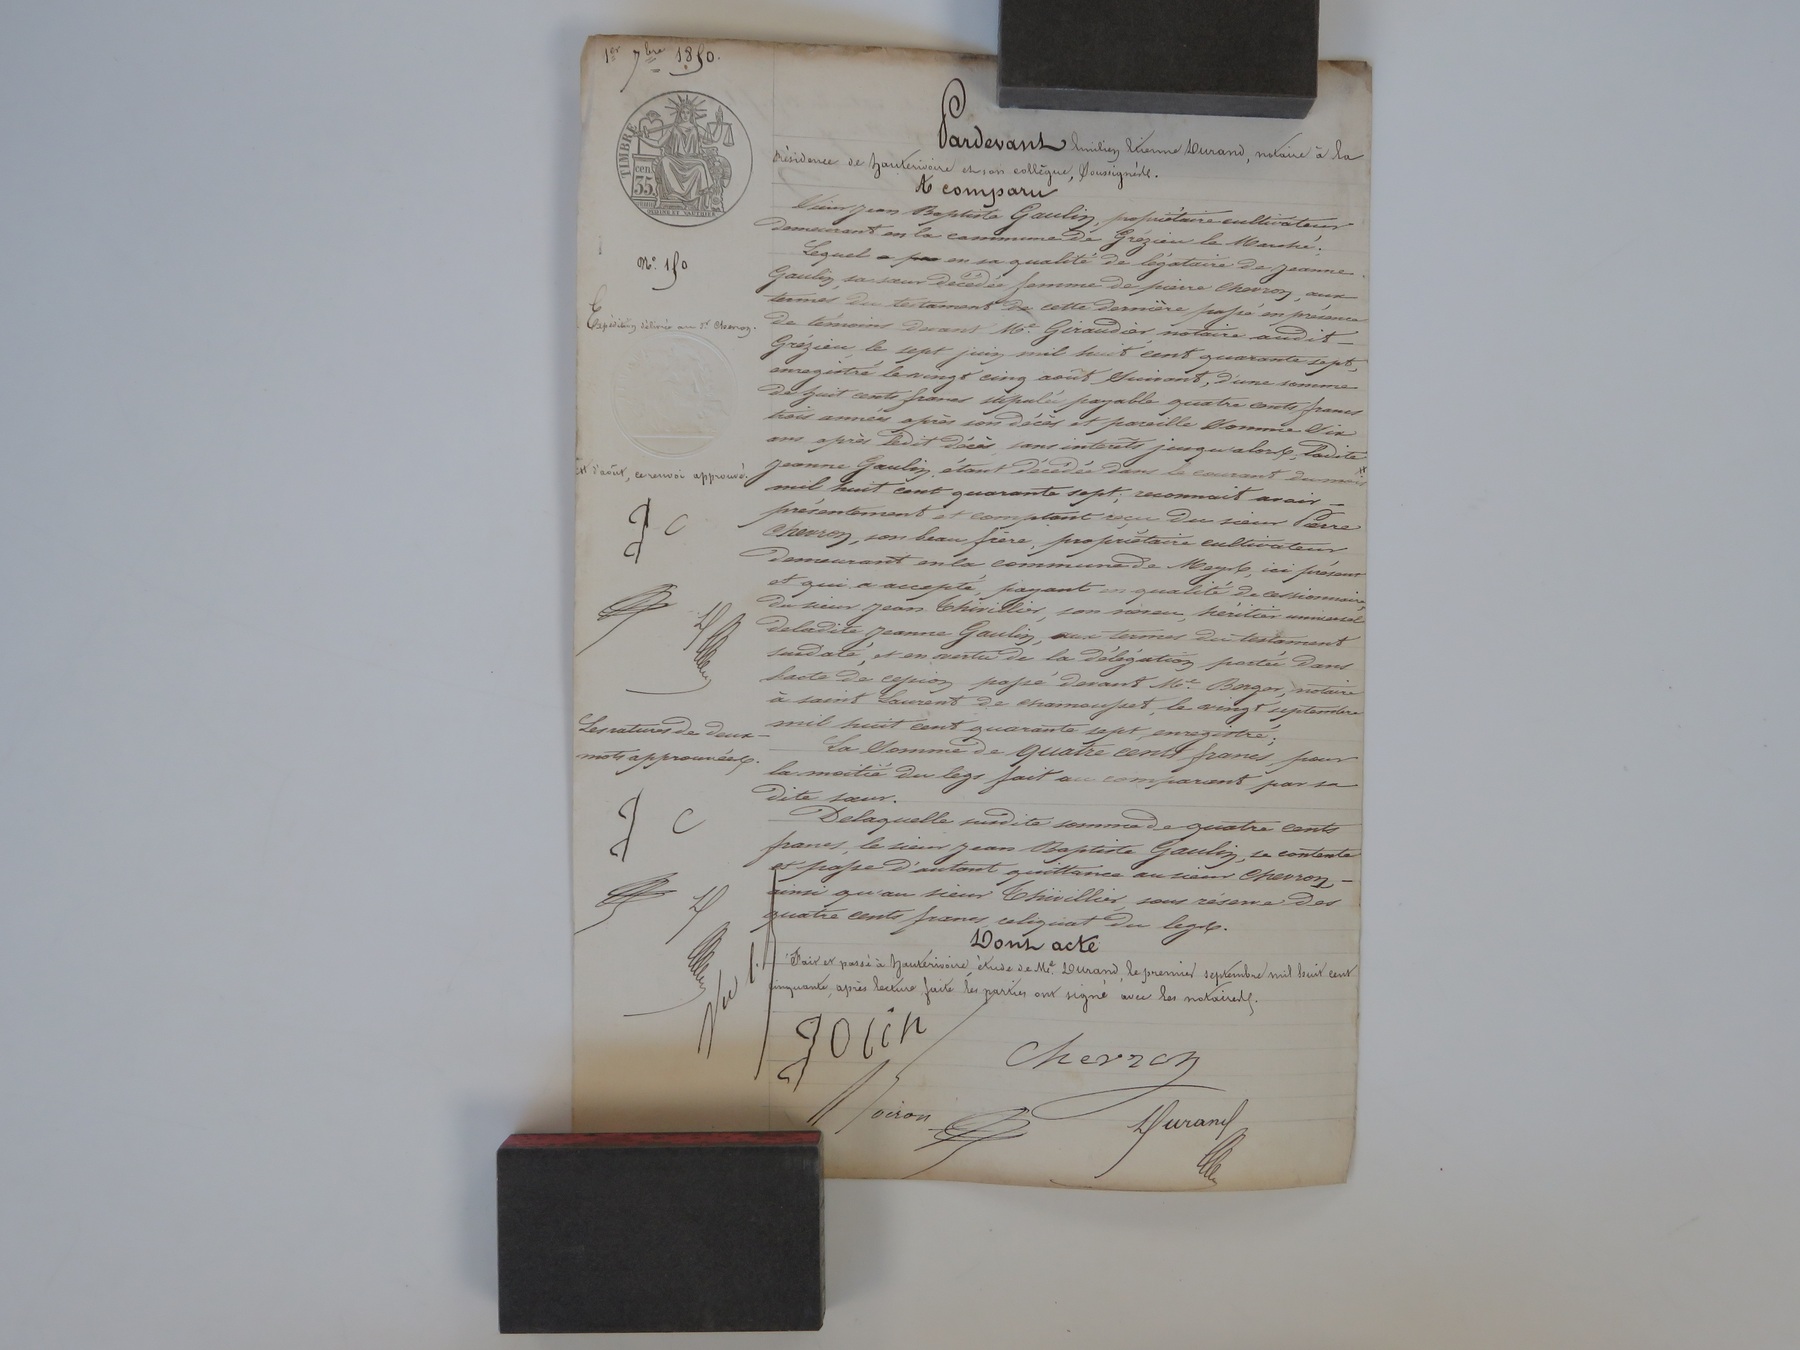 1er 7bre 1850.
TIMBRE
cen
35
No. 150
Expédition délivrée au Sr. Chevron.
Pardevant Emilien Etienne Durand, notaire à la
résidence de hauterivoire et son collègue, Soussignés.
A comparu
Sieur jean Baptiste Gaulin, propriétaire cultivateur
demeurant en la commune de Grézieu le Marché;
Lequel en sa qualité de légataire de jeanne
Gaulin, sa sœur décédée femme de pierre Chevron, aux
termes du testament de cette dernière passé en présence
de témoins devant Me. Giraudier, notaire audit
Grézieu, le sept juin mil huit cent quarante sept,
enregistré le vingt cinq août Suivant, d'une somme
de huit cents francs stipulée payable quatre cents francs
trois années après son décès et pareille Somme Six
ans après ledit décès, sans intérêts jusqu'alors, Ladite
jeanne Gaulin étant décédée dans le courant du mois
mil huit cent quarante sept; reconnait avoir
présentement et comptant reçu du sieur Pierre
Chevron, son beau frère, propriétaire cultivateur
demeurant en la commune de Meys, ici présent
et qui a accepté, payant en qualité de cessionnaire
du sieur jean Thivillier, son neveu, héritier universel
deladite jeanne Gaulin, aux termes du testament
susdaté, et en vertu de la délégation portée dans
l'acte de cession passé devant Me. Berger, notaire
à saint Laurent de chamousset, le vingt septembre
mil huit cent quarante sept, enregistré;
La Somme de quatre cents francs, pour
la moitié du legs fait au comparant par sa
dite sœur.
Delaquelle susdite somme de quatre cents
francs, le sieur jean Baptiste Gaulin, se contente
et passe d'autant quittance au sieur Chevron,
ainsi qu'au sieur Thivillier, sous réserve des
quatre cents francs reliquat du legs.
Dont acte
Fait et passé à hauterivoire, étude de Me. Durand, le premier septembre mil huit cent
cinquante, après lecture faite les parties ont signé avec les notaires.
d'août, ce renvoi approuvé.
J C
D
Les ratures de deux
mots approuvées.
J C
D
Vu
Chevron
Voiron
Durand